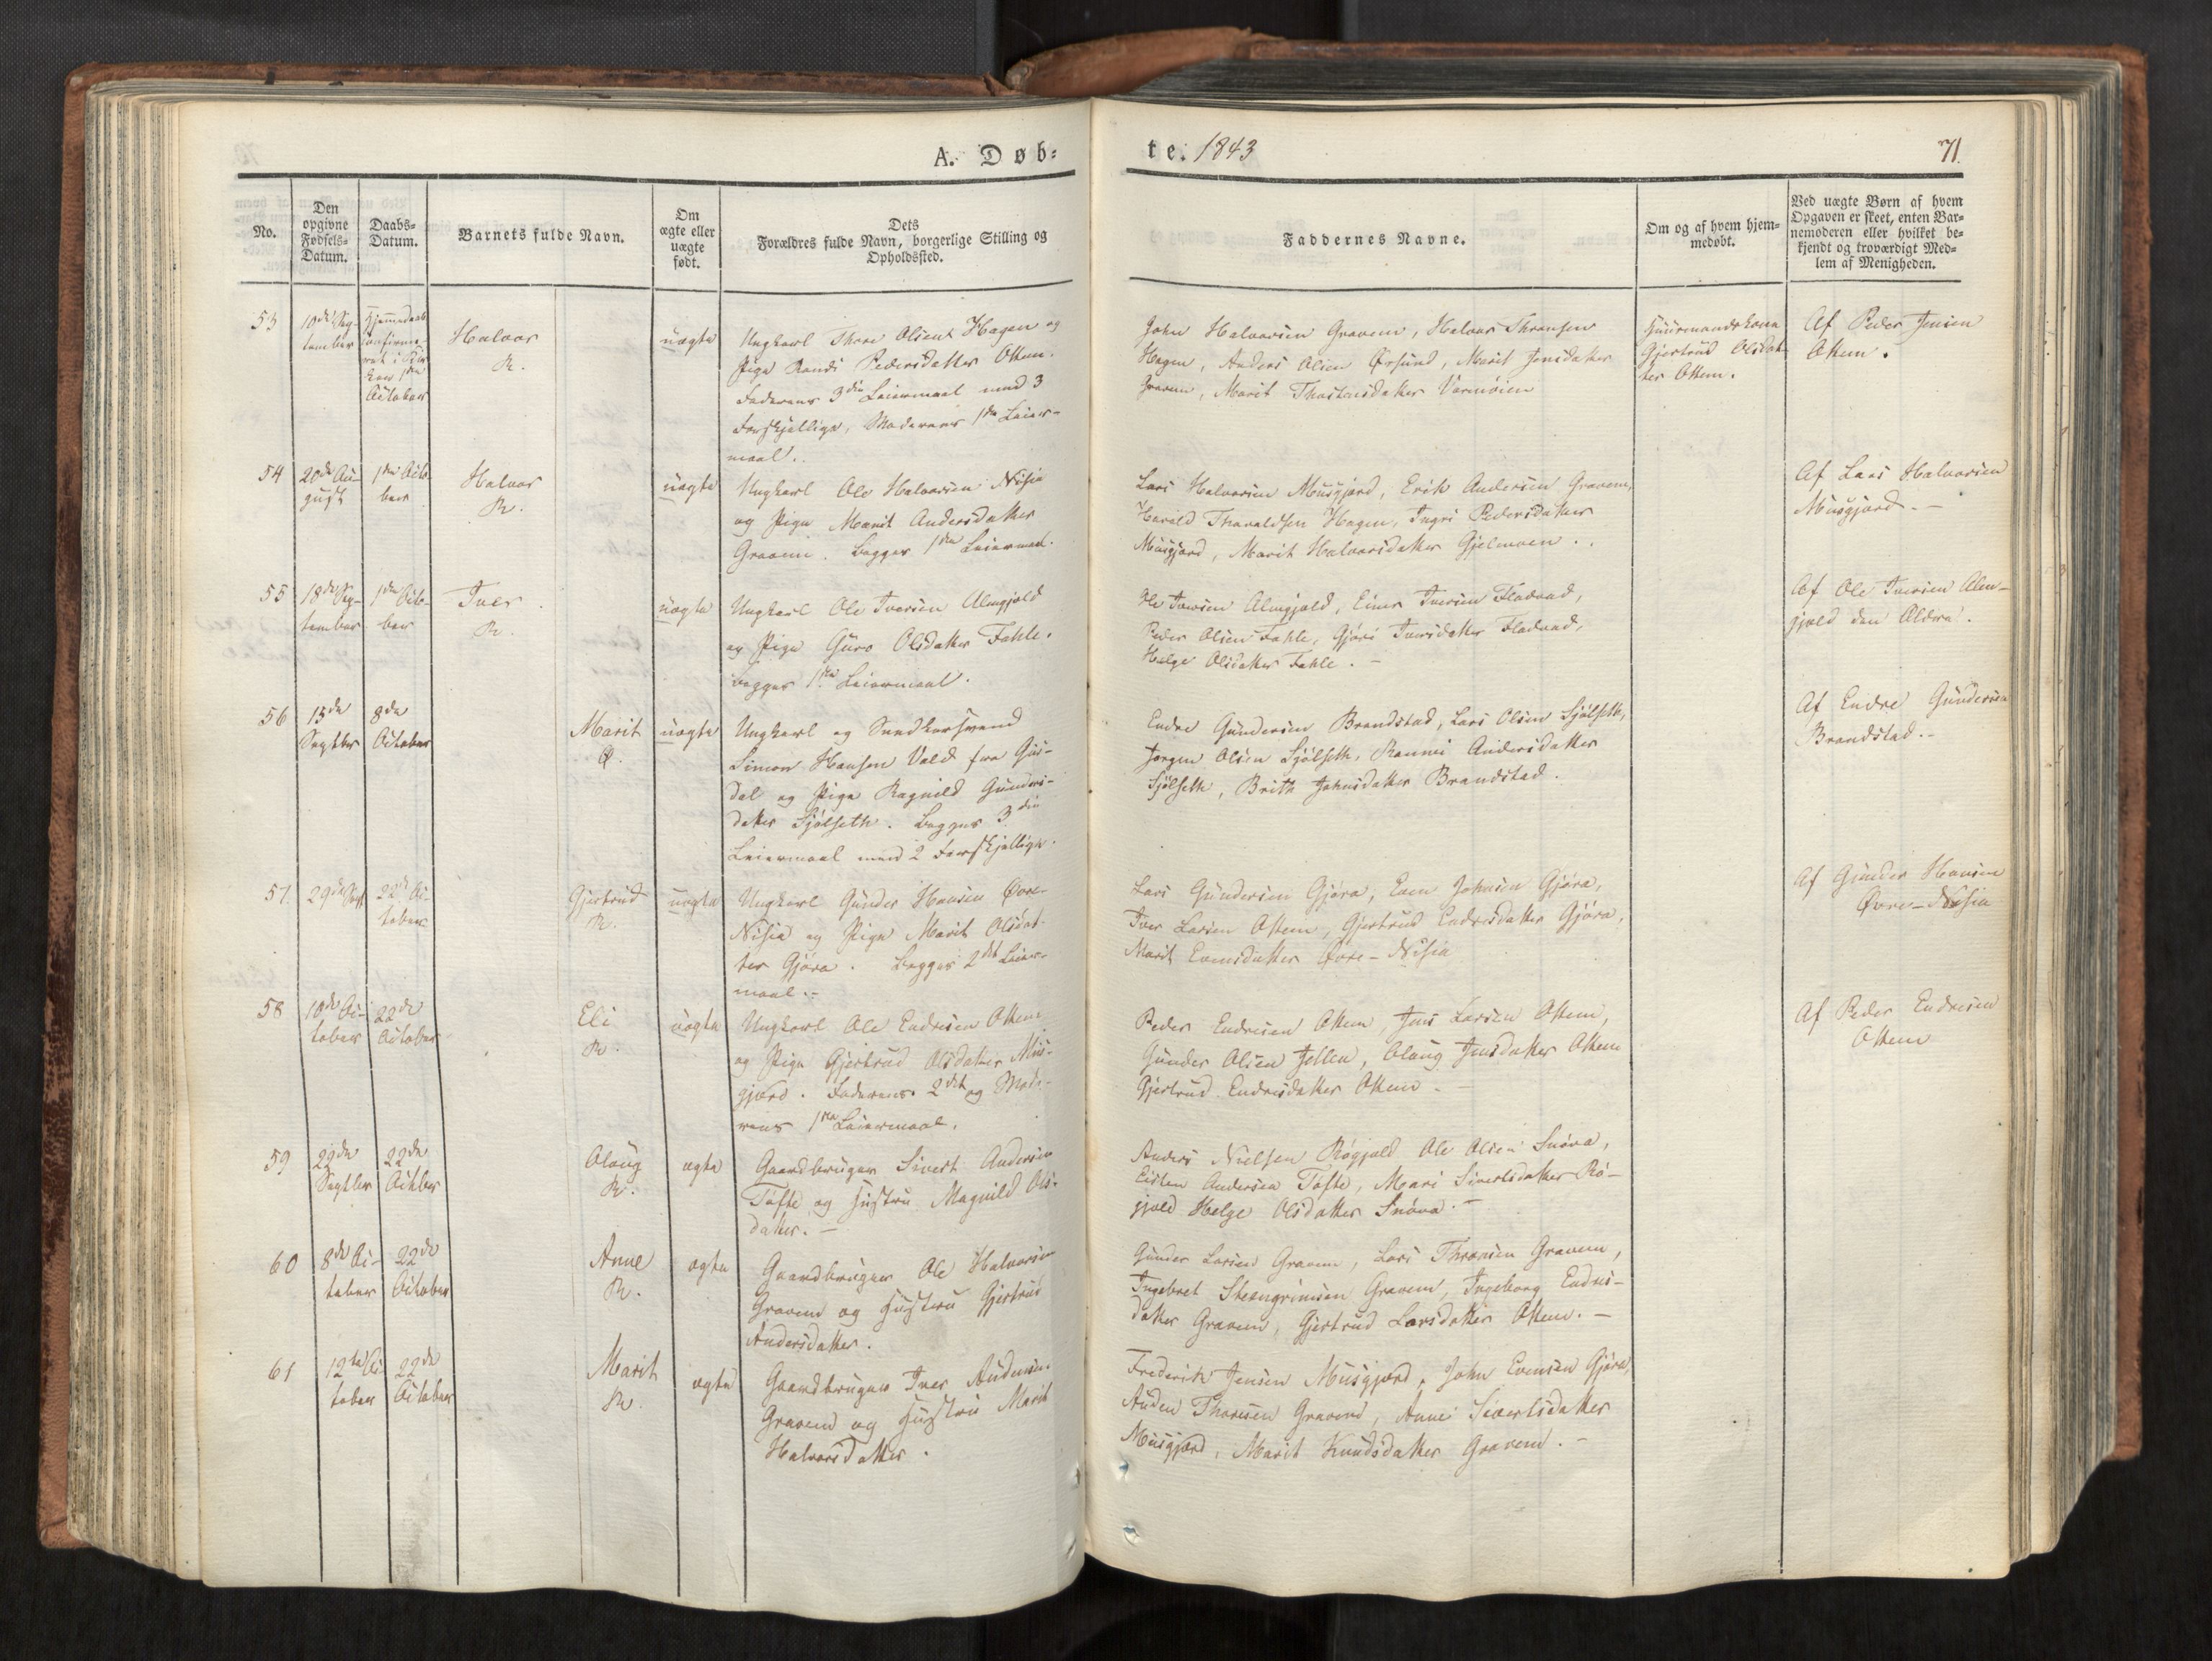 A. Døb-
No.
Den opgivne Fødsels-Datum.
Daabs-Datum.
Barnets fulde Navn.
Om ægte eller uægte født.
Dets Forældres fulde Navn, borgerlige Stilling og Opholdssted.
te. 1843
71.
Faddernes Navne.
Om og af hvem hjemmedøbt.
Ved uægte Børn af hvem Opgaven er skeet, enten Barnemoderen eller hvilket bekjendt og troværdigt Medlem af Menigheden.
53
10de Sep-
tember
Hjemmedøbt
October
Halvor
R.
uægte
Ungkarl Thore Olsen Hagen og
Pige Randi Pedersdatter Ottem.
Faderens 3die Leiermaal med 3
Forskjellige, Moderens 1ste Leier-
maal.
John Halvorsen Gravem, Halvor Thoresen
Hagen, Anders Olsen Ørsund, Marit Jensdatter
Gravem, Marit Thostensdatter Vermøien
Gjertrud Olsdat-
ter Ottem.
Af Peder Jensen
Ottem.
54
20de Au-
gust
1ste Octo-
ber
Halvor
R.
uægte
Ungkarl Ole Halvorsen Nisja
og Pige Marit Andersdatter
Gravem. Begges 1ste Leiermaal.
Lars Halvorsen Musgjerd, Erik Andersen Gravem,
Harald Tharaldsen Hagen, Ingri Pedersdatter
Musgjerd, Marit Halvorsdatter Gjelmoen.
Af Lars Halvorsen
Musgjerd.-
55
18de Sep-
tember
1ste Octo-
ber
Iver
R.
uægte
Ungkarl Ole Iversen Almgjeld
og Pige Guro Olsdatter Fahle.
Begges 1ste Leiermaal.
Ole Iversen Almgjeld, Einer Iversen Fladvad,
Peder Olsen Fahle, Gjøri Iversdatter Fladvad,
Helge Olsdatter Fahle. -
Af Ole Iversen Alm-
gjeld den Ældre.
56
15de
Septbr
8de
October
Marit
Ø.
uægte
Ungkarl og Snedkersvend
Simon Hansen Vold fra Gus-
dal og Pige Ragnild Gunders-
datter Sjølseth. Begges 3die
Leiermaal med 2 Forskjellige.
Endre Gundersen Brandstad, Lars Olsen Sjølseth,
Jørgen Olsen Sjølseth, Rannei Andersdatter
Sjølseth, Brith Johnsdatter Brandstad.
Af Endre Gundersen
Brandstad.-
57
29de Sept
22de Oc-
tober
Gjertrud
R.
uægte
Ungkarl Gunder Hansen Øvre-
Nisja og Pige Marit Olsdat-
ter Gjøra. Begges 2det Leier-
maal.-
Lars Gundersen Gjøra, Even Johnsen Gjøra,
Iver Larsen Ottem, Gjertrud Endresdatter Gjøra,
Marit Evensdatter Øvre-Nisja
Af Gunder Hansen
Øvre-Nisja
58
10de Oc-
tober
22de
October
Eli
R.
uægte
Ungkarl Ole Endresen Ottem
og Pige Gjertrud Olsdatter Mus-
gjerd. Faderens 2det og Mode-
rens 1ste Leiermaal.
Peder Endresen Ottem, Jens Larsen Ottem,
Gunder Olsen Jellen, Olaug Jensdatter Ottem
Gjertrud Endresdatter Ottem. -
Af Peder Endresen
Ottem
59
29de
Septbr
22de
Octbr
Olaug
R.
ægte
Gaardbruger Sivert Andersen
Tofte og Hustru Magnild Ols-
datter. -
Anders Nielsen Røgjeld Ole Olsen Snøva,
Eisten Andersen Tofte, Mari Sivertsdatter Rø-
gjeld Helge Olsdatter Snøva. -
60
8de Oc-
tober
22de
October
Anne
R.
ægte
Gaardbruger Ole Halvorsen
Gravem og Hustru Gjertrud
Andersdatter.
Gunder Larsen Gravem, Lars Thoresen Gravem,
Ingebret Steengrimsen Gravem, Ingeborg Endres-
datter Gravem, Gjertrud Larsdatter Ottem. -
61
12te Oc-
tober
22de
October
Marit
R.
ægte
Gaardbruger Iver Audensen
Gravem og Hustru Marit
Halvorsdatter.
Frederik Jensen Musgjerd, John Evensen Gjøra,
Auden Thoresen Gravem, Anne Sivertsdatter
Musgjerd, Marit Knudsdatter Gravem. -